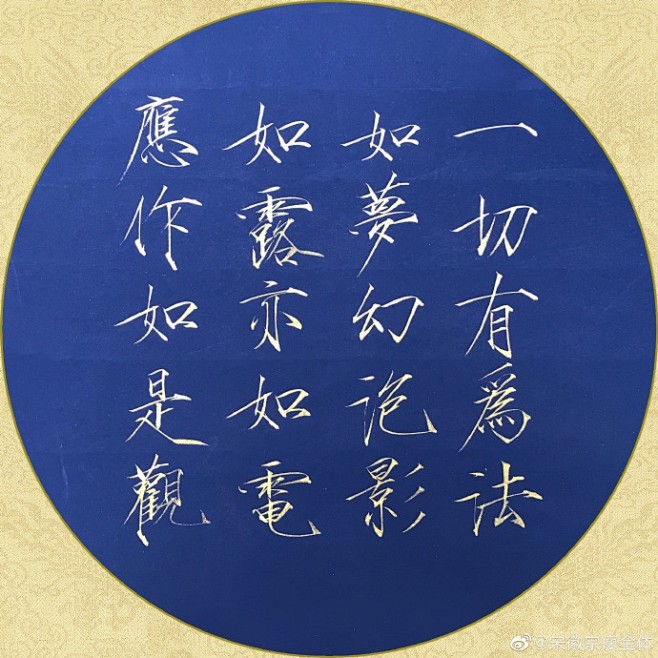 一切有為法
如夢幻泡影
如露亦如電
應作如是觀
@宋徽宗瘦金体